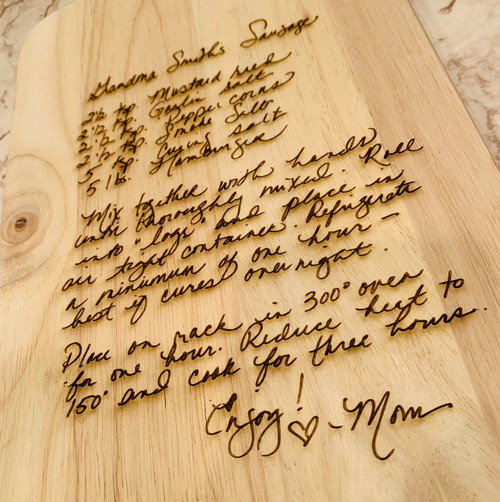 Grandma Smith's Sausage
2 1/2 tsp. Mustard seed
2 1/2 tsp. Garlic salt
2 1/2 tsp. Pepper corns
2 1/2 tsp. Smoke Salt
5 tsp. Curing salt
5 lbs. Hamburger
Mix together with hands
until thoroughly mixed. Roll
into "logs" and place in
air tight container. Refrigerate
a minumum of one hour –
best if cures overnight.
Place on rack in 300° oven
for one hour. Reduce heat to
150° and cook for three hours.
Enjoy!
♡ - Mom